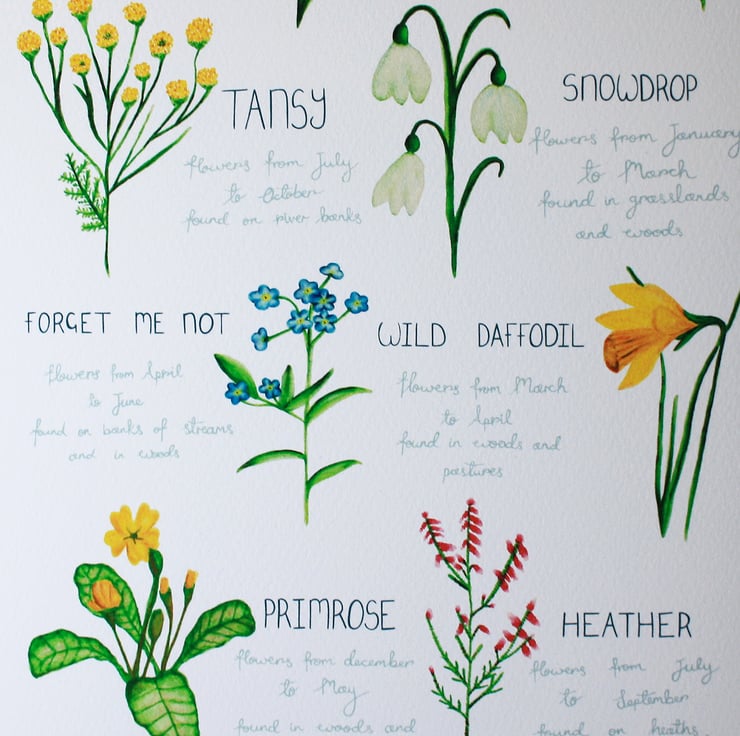 TANSY
flowers from July
to October
found on river banks
SNOWDROP
flowers from January
to March
found in grasslands
and woods
FORGET ME NOT
flowers from April
to June
found on banks of streams
and in woods
WILD DAFFODIL
flowers from March
to April
found in woods and
pastures
PRIMROSE
flowers from december
to May
found in woods and
HEATHER
flowers from July
to September
found on heaths.